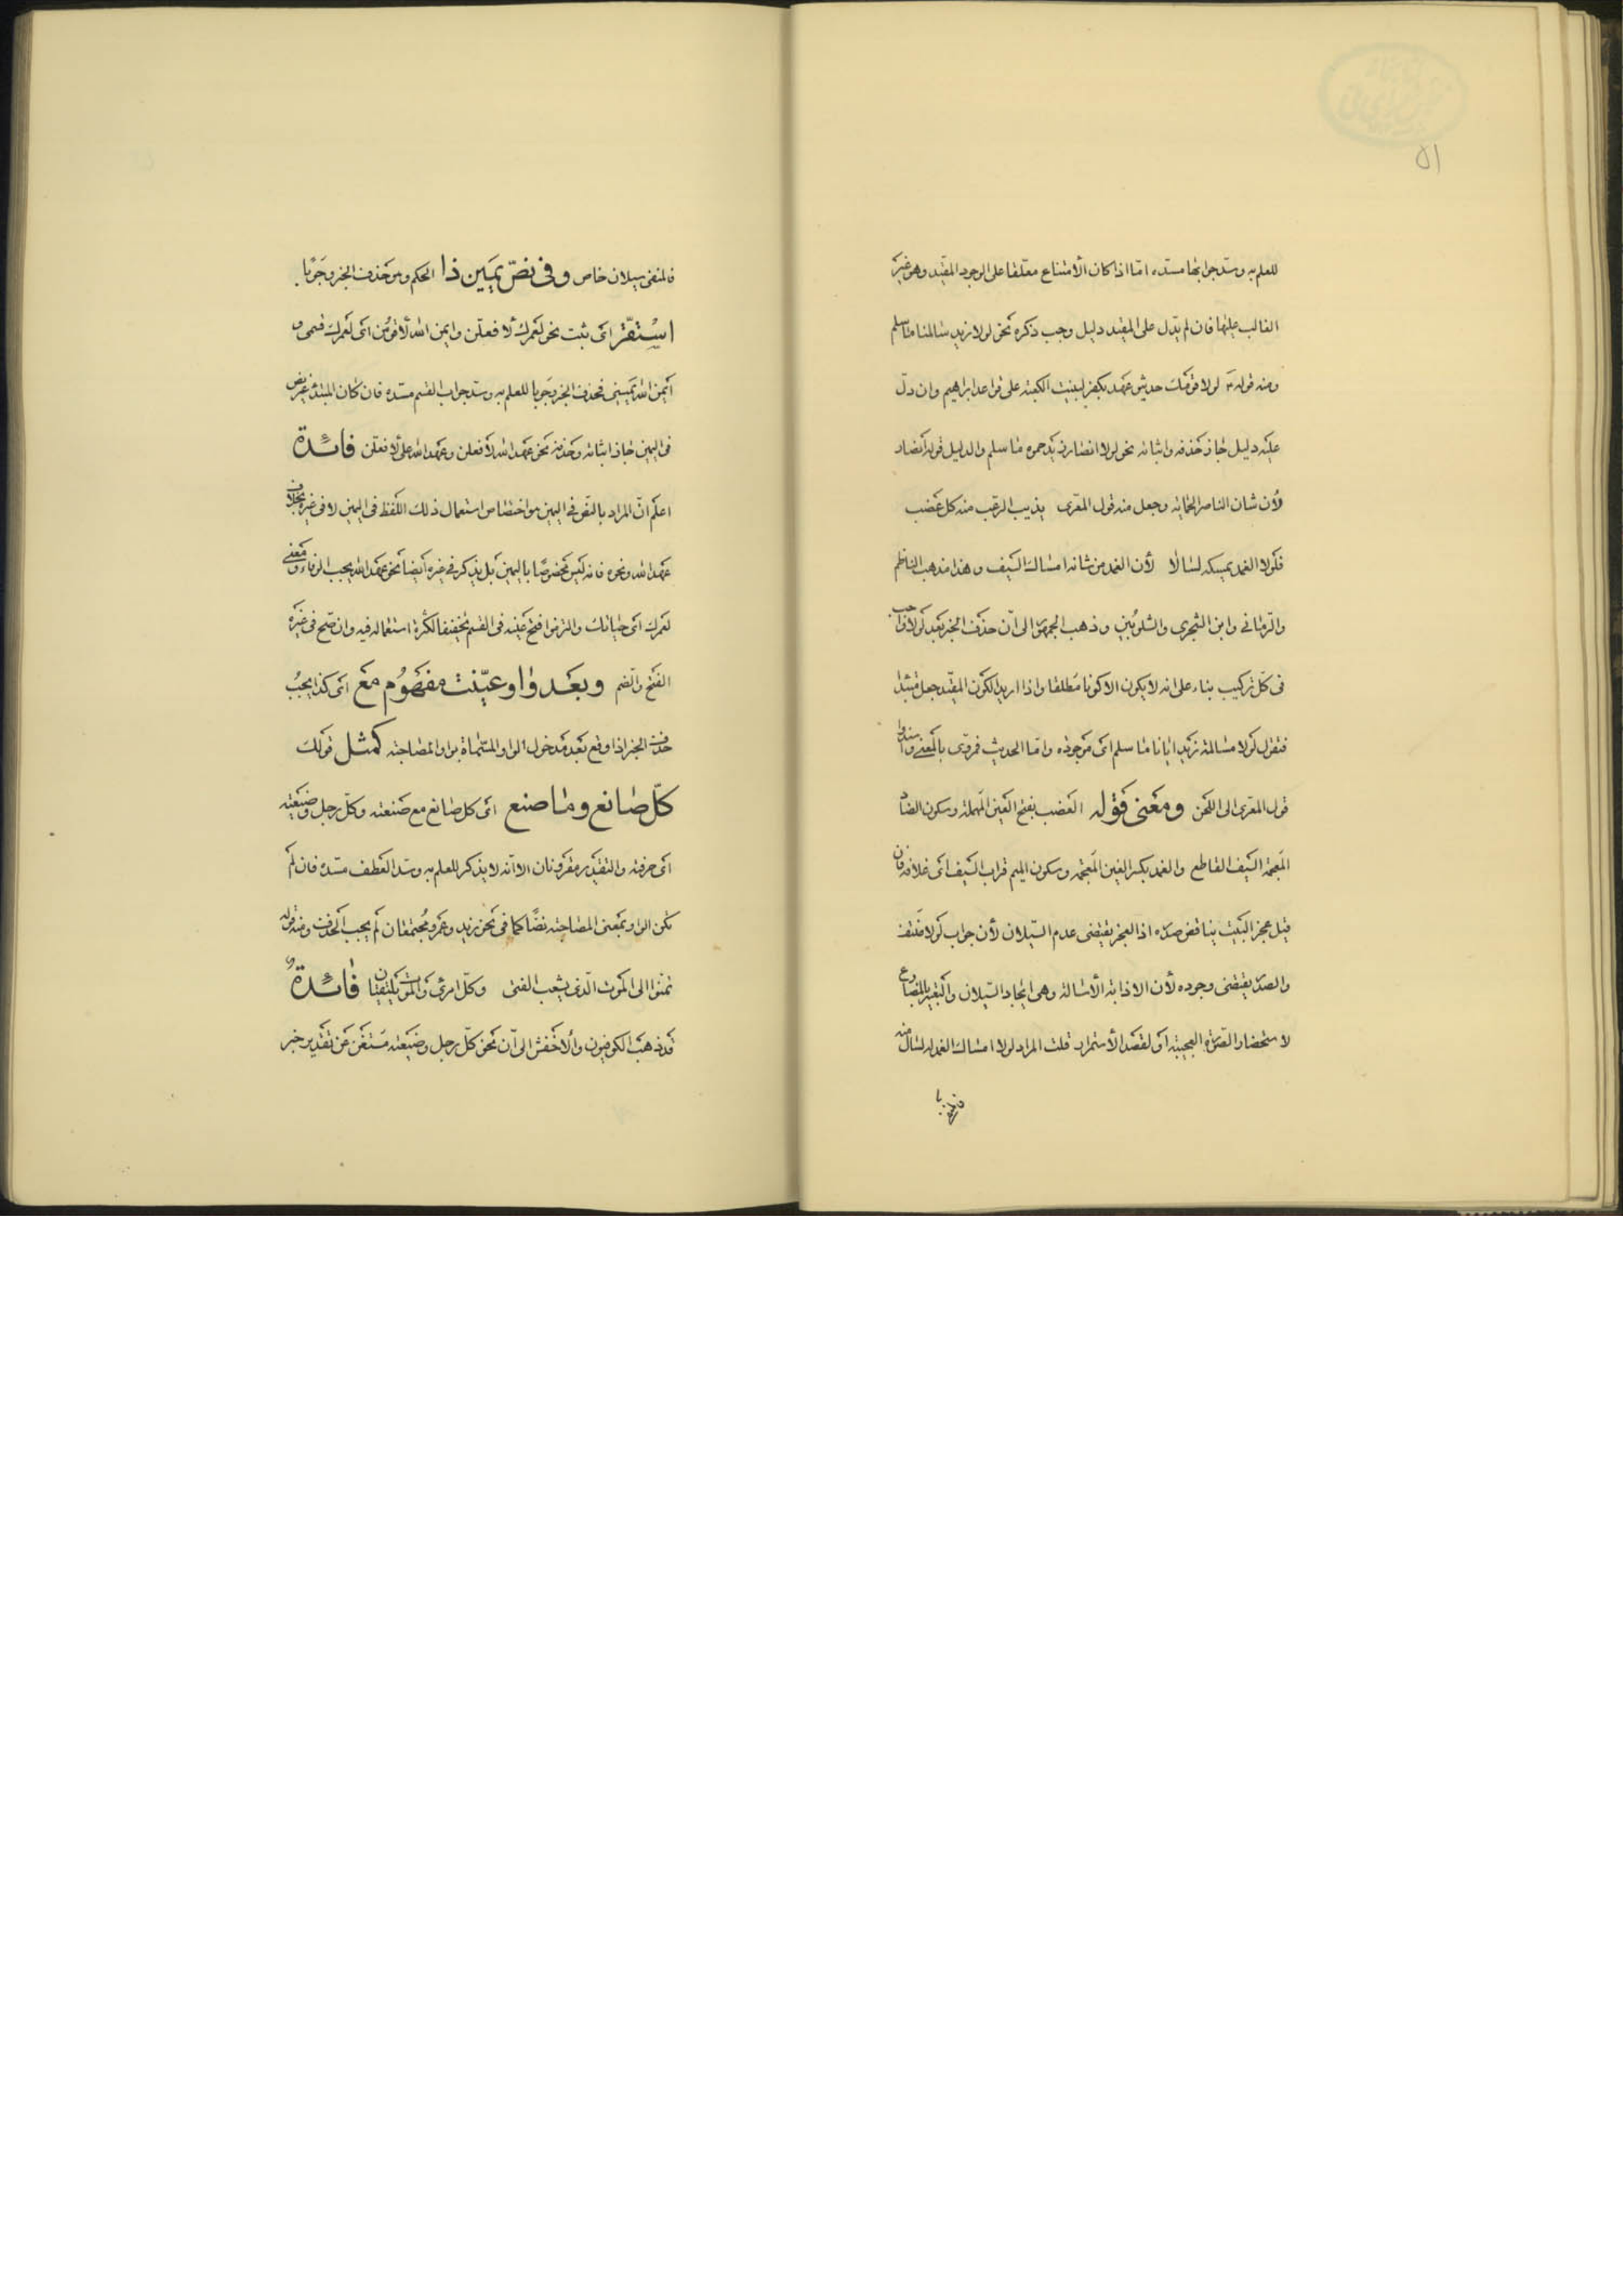 ٥١
للعلم به وسد جوابها مسده امّا اذا كان الامتناع معلقا على الوجود المقيد وهو غير
الغالب عليها فان لم يدل على المقيد دليل وجب ذكره نحو لولا زيد سالمنا ما سلم
ومنه قوله لولا قومك حديثو عهد بكفر لبنيت الكعبة على قواعد ابراهيم وان دلّ
عليه دليل جاز حذفه واثباته نحو لولا انصار زيد حموه ما سلم والدليل قوله انصار
لأن شان الناصر الحماية وجعل منه قول المعرى يذيب الرعب منه كل عضب
فلولا الغمد يمسكه لسالا لأن الغمد من شانه امساك السيف وهذا مذهب الناظم
والرمّانى وابن الشجرى والشلوبين وذهب الجمهور الى ان حذف الخبر بعد لولا واجب
فى كل تركيب بناء على انه لا يكون الا كونا مطلقا واذا اريد الكون المقيد جعل مبتدا
فتقول لولا مسالمة زيد ايانا ما سلم اى موجودة وامّا الحديث فمروى بالمعنى وأسندوا
قول المعرى الى اللحن ومعنى قوله العضب بفتح العين المهملة وسكون الضاد
المعجمة السيف القاطع والغمد بكسر الغين المعجمة وسكون الميم قراب السيف اى غلافه فان
قيل عجز البيت يناقض صدره اذ العجز يقتضى عدم السيلان لأن جواب لولا منتف
والصدر يقتضى وجوده لأن الاذابة الأسالة وهى ايجاد السيلان والتعبير بالمضارع
لاستحضار الصورة العجيبة او لقصد الأستمرار قلت المراد لولا امساك الغمد له لسال منه
فالمنفى سيلان خاص وفى نصّ يمين ذا الحكم وهو حذف الخبر وجوبا
استقرّ اى ثبت نحو لعمرك لأفعلن وايمن الله لأقومن اى لعمرك قسمى و
ايمن الله يمينى فحذف الخبر وجوبا للعلم به وسد جواب القسم مسده فان كان المبتدا غير نص
فى اليمين جاز اثباته وحذفه نحو عهد الله لأفعلن وعهد الله على لأفعلن فائدة
اعلم ان المراد بالنص فى اليمين هو اختصاص استعمال ذلك اللفظ فى اليمين لا فى غيره بخلاف
عهد الله ونحوه فانه ليس مخصوصا باليمين بل يذكر فى غيره ايضا نحو عهد الله يجب الوفاء ومعنى
لعمرك اى حياتك والتزموا فتح عينه فى القسم تخفيفا لكثرة استعماله فيه وان صح فى غيره
الفتح والضم وبعد واو عيّنت مفهوم مع اى كذا يجب
حذف الخبر اذا وقع بعد مدخول الواو المسماة بواو المصاحبة كمثل قولك
كلّ صانع وما صنع اى كل صانع مع صنعته وكل رجل وضيعته
اى حرفته والتقدير مقرونان الا انه لا يذكر للعلم به وسد العطف مسده فان لم
تكن الواو بمعنى المصاحبة نصا كما فى نحو زيد وعمرو مجتمعان لم يجب الحذف ومنه قوله
تمنوا الى الموت الذى يشعب الفتى وكل امرئ والموت يلتقيان فائدة
قد ذهب الكوفيون والأخفش الى ان نحو كل رجل وضيعته مستغن عن تقدير خبر